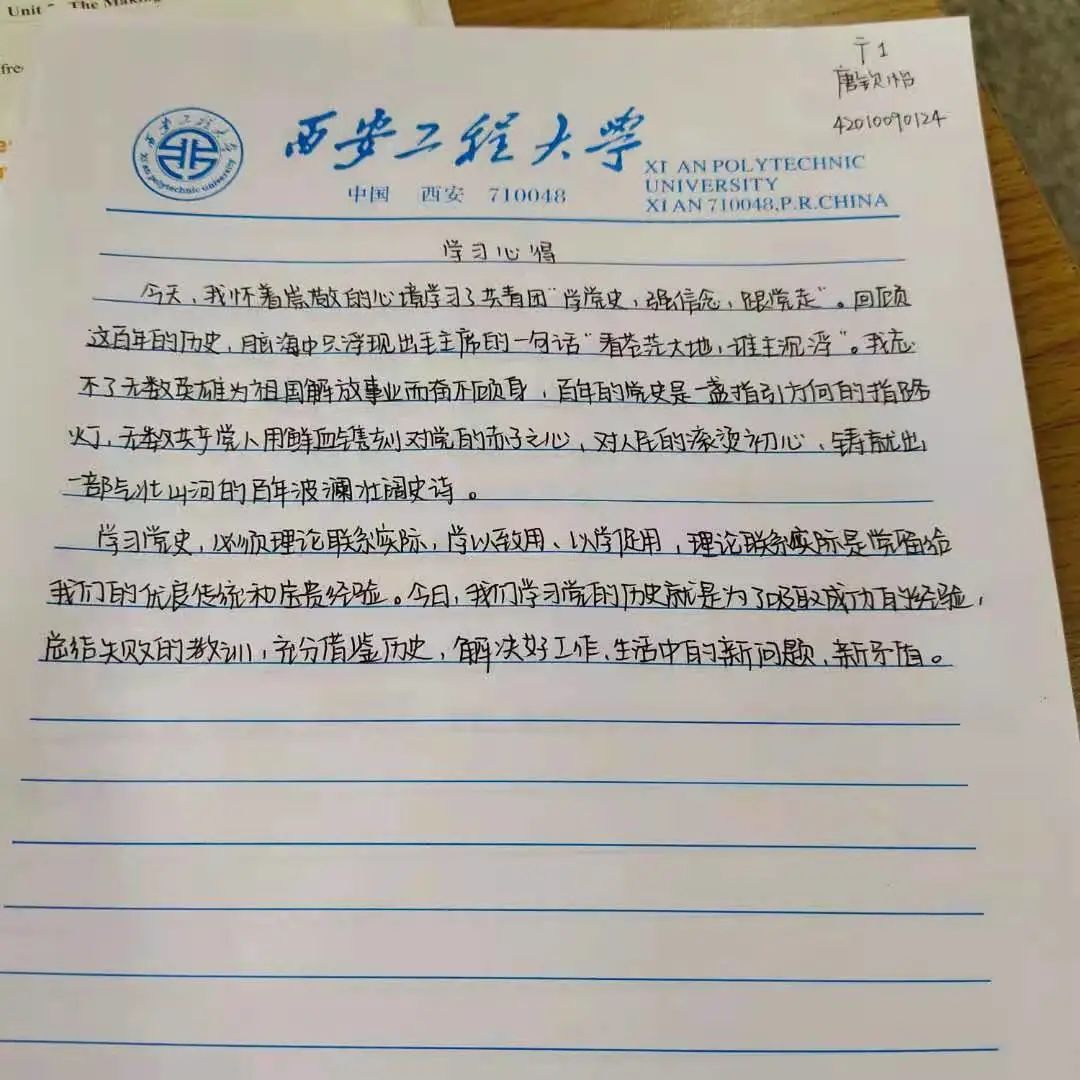 Unit
The Making
fre
行1
唐钦怡
42010090124
西安工程大学
西安工程大学
Xi'an polytechnic university
XI AN POLYTECHNIC
UNIVERSITY
XI AN 710048,P.R.CHINA
中国 西安 710048
学习心得
今天，我怀着崇敬的心境学习了共青团“学党史，强信念，跟党走”。回顾
这百年的历史，脑海中只浮现出毛主席的一句话“看苍茫大地，谁主沉浮”。我忘
不了无数英雄为祖国解放事业而奋不顾身，百年的党史是一盏指引方向的指路
灯，无数共产党人用鲜血镌刻对党的赤子之心，对人民的滚烫初心，铸就出
一部气壮山河的百年波澜壮阔史诗。
学习党史，必须理论联系实际，学以致用、以学促用，理论联系实际是党留给
我们的优良传统和宝贵经验。今日，我们学习党的历史就是为了吸取成功的经验，
总结失败的教训，充分借鉴历史，解决好工作、生活中的新问题，新矛盾。